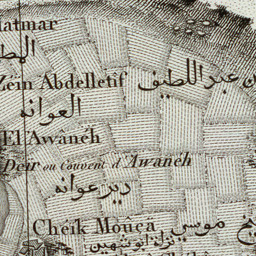 latmar
المط
Zéin Abdelletif ن عبد اللطيف
العوانه
El Awânéh
Deir ou Couvent d'Awanéh
دير عوانه
Cheik Moûçä موسي